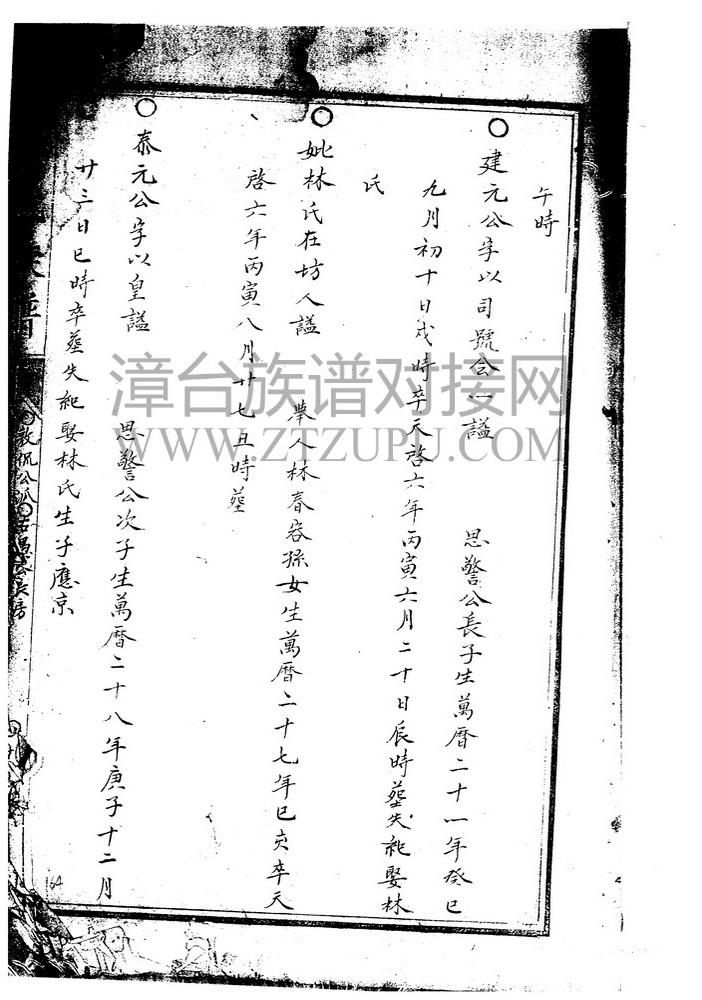 午時
建元公字以司號含一謚 思警公長子生萬曆二十一年癸巳
九月初十日戌時卒天啓六年丙寅六月二十日辰時塟失紀娶林
氏
妣林氏在坊人謚 舉人林春容孫女生萬曆二十七年巳亥卒天
啓六年丙寅八月廿七丑時塟
泰元公字以皇謚 思警公次子生萬曆二十八年庚子十二月
廿三日巳時卒塟失紀娶林氏生子應京
漳台族谱对接网
WWW.ZTZUPU.COM